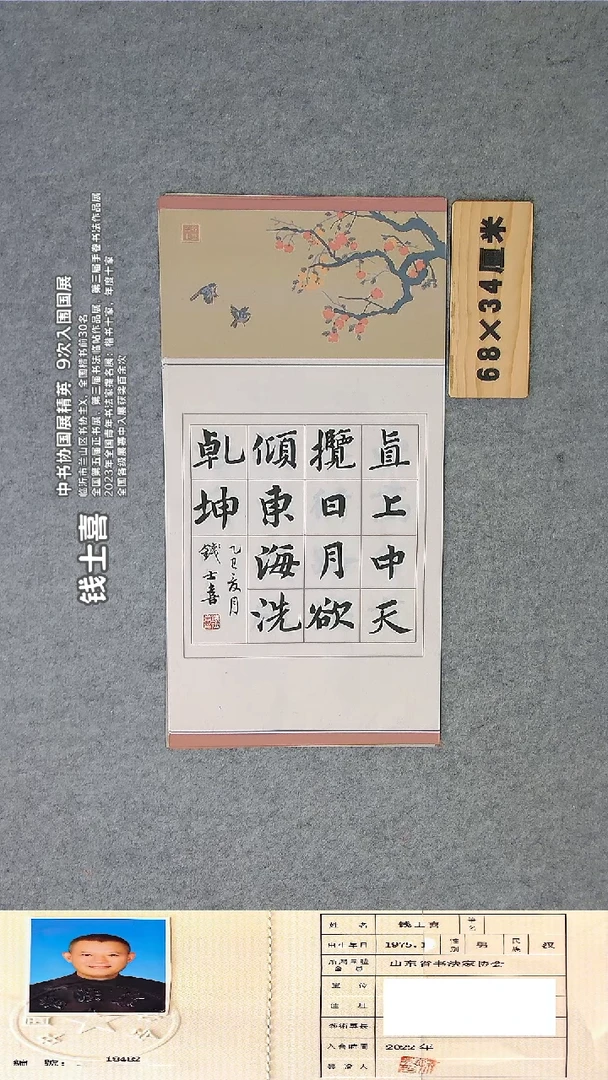 直上中天
攬日月欲
傾東海洗
乹坤
乙巳夏月
錢士喜
68×34厘米
钱士喜
中书协国展精英 9次入围国展
临沂市兰山区书协主X，全国楷书前30名
全国第五届正书展、第三届书法临帖作品展、第三届手卷书法作品展
2023年全国青年书法家提名展：楷书十家，年度十家
全国各级展赛中入展获奖百余次
姓 名 钱士喜
出生年月 1975.1 性别 男 民族 汉
山东省书法家协会
入会時間 2022 年
號：19402